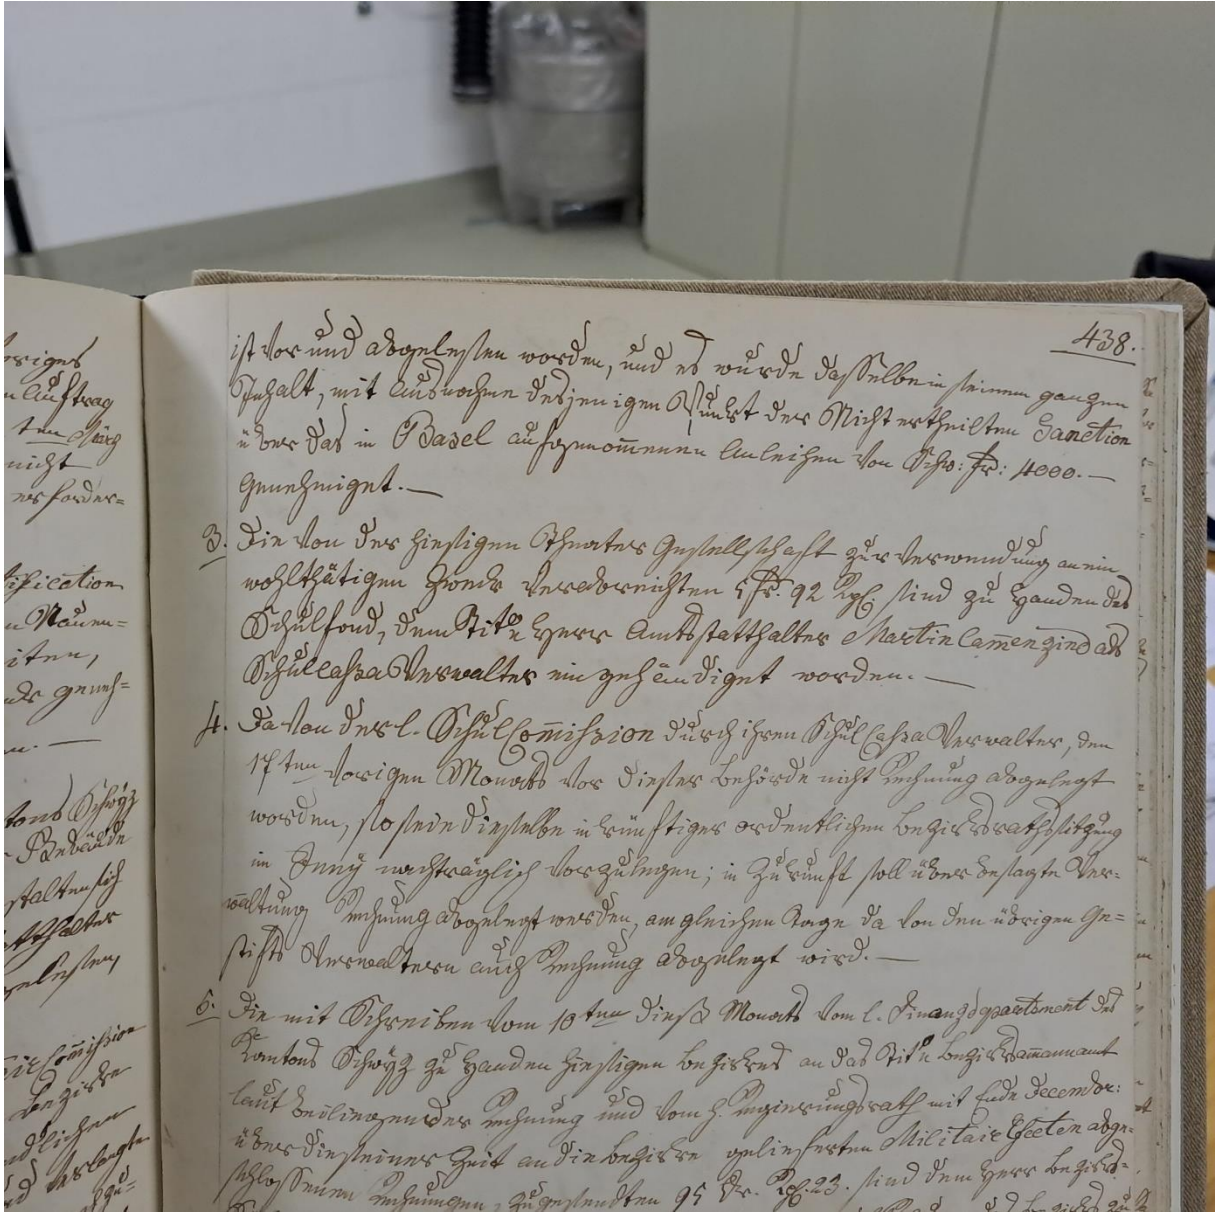 438.
ist vor und abgelesen worden, und es wurde dasselbe in seinem ganzen
Inhalt, mit Ausnahme desjenigen Punkt der Nicht ertheilten Sanction
über das in Basel aufgenom̅enen Anleihen von Schw: Fr: 4000.—
genehmiget.—
3. Die von der hiesigen Theater Gesellschaft zur Verwendung an ein
wohlthätigen Zweck verabreichten Fr. 92 Rp. sind zu Handen des
Schulfond, dem Herr Amtsstatthalter Martin Cam̅enzind als
Schulcassa Verwalter eingehändiget worden.—
4. Da von der l. Schul Com̅ission durch ihren Schul Cassa Verwalter, den
17ten vorigen Monats vor dieser Behörde nicht Rechnung abgelegt
worden, so seie dieselbe in künftiger ordentlichen Bezirksrathssitzung
im Jenny nachträglich vorzulegen; in Zukunft soll über besagte Ver-
waltung Rechnung abgelegt werden, am gleichen Tage da von den übrigen Ge=
stifts Verwaltern auch Rechnung abgelegt wird.—
5. Die mit Schreiben vom 10ten dieß Monats vom l. Finanzdepartement des
Kantons Schwÿz zu Handen hiesigen Bezirkes an das Bezirksam̅annamt
laut beiliegender Rechnung und vom h. Regierungsrath mit Ende Decembr:
über die seiner Zeit an die Bezirke gelieferten Militair Effecten abge=
schlossenen Rechnungen, zugesendten 95 Fr. Rp. 23. sind dem Herr Bezirks=
eriges
n Auftrag
ten März
nicht
erforder=
ification
n Mauen=
iten,
geneh=
tons Schwÿz
Gebäude
stalten sich
tthalter
gelesen,
Com̅ission
Bezirke
ndlichen
verlangte
zu=